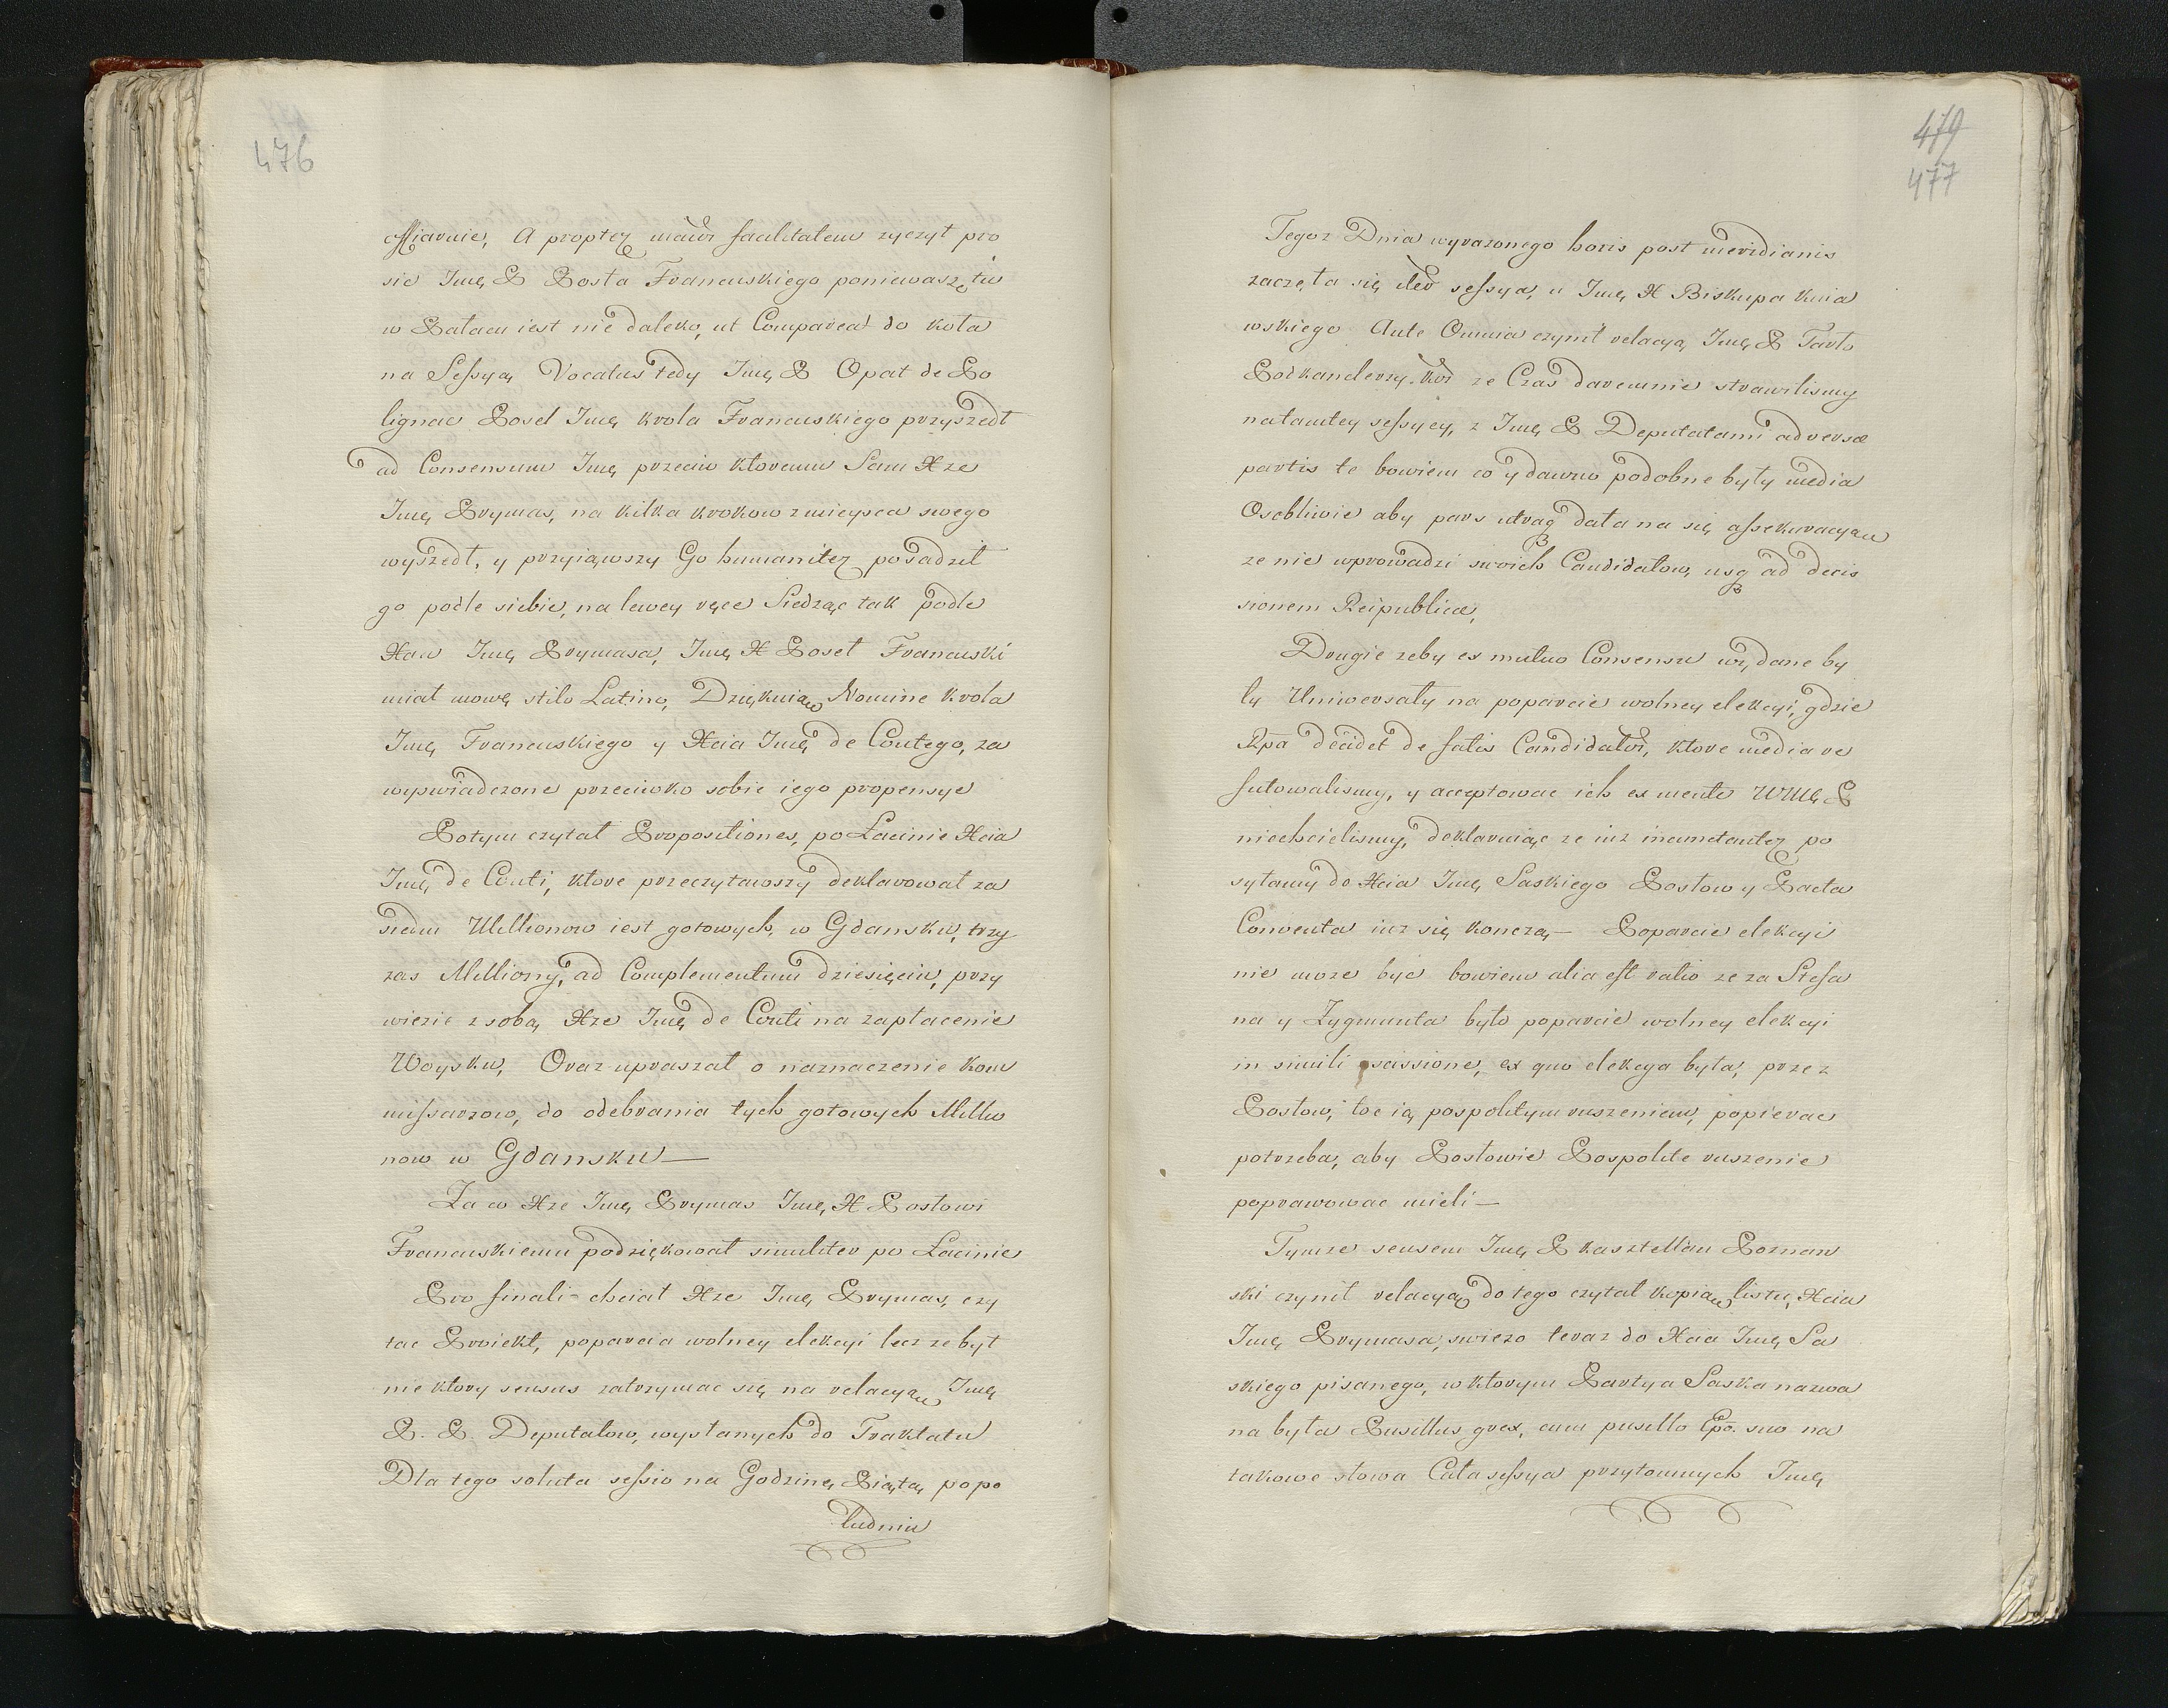 476
ffiarnie, A propter maior facilitatem zyczyt pro
sie Jmę P Posta Francuskiego poniewasz tu
w Pałacu iest nie daleko, ut Compareat do koła
na Sessyą Vocatus tedy Jmę P Opat de Po
lignac Poseł Jmę krola Francuskiego przyszedł
ad Consensum Jmę przeciw ktoremu Sam Xze
Jmę Prymas, na kilka krokow z mieysca swego
wyszedł, y przyiąwszy Go humaniter posadził
go podle siebie, na lewey ręce Siedząc tak podle
Xcia Jmę Prymasa, Jmę X Poseł Francuski
miał mowę stilo Latino, Dziękuiąc Nomine krola
Jmę Francuskiego y Xcia Jmę de Contego, za
wyswiadczone przeciwko sobie iego propensye
Potym czytał Propositiones, po Łacinie Xcia
Jmę de Conti, ktore przeczytawszy deklarował za
siedm Millionow iest gotowych, w Gdansku, trzy
zas Milliony, ad Complementum dziesięciu, przy
wiezie z sobą Xze Jmę de Conti na zapłacenie
Woysku, Oraz upraszał o naznaczenie kom
missarzow, do odebrania tych gotowych Millio
now w Gdansku —
Za co Xze Jmę Prymas Jmę X Posłowi
Francuskiemu podziękował similiter po Łacinie
Pro finali chciał Xze Jmę Prymas, czy
tac Proiekt, poparcia wolney elekcyi lecz ze był
nie ktory sensus zatrzymac się na relacyą Jmę
P. P. Deputatow, wysłanych do Traktatu
Dla tego soluta sessio na Godzinę Piątą popo
łudniu
479
477
Tegoz Dnia wyrazonego horis post meridianis
zaczęła się sessya, u Jmę X Biskupa kuia
wskiego Ante Omnia czynił relacyą Jmę P Tarło
Podkanclerzy kor ze Czas daremnie strawilismy
natamtey sessyey, z Jmę P Deputatami adversæ
partis te bowiem co y dawno podobne były media
Osobliwie aby pars utraq dała na się assekuracyą
ze nie wprowadzi swoich Candidatow, usq ad decis
sionem Reipublicæ,
Drugie zeby ex mutuo Consensu wydane by
ły Uniwersały na poparcie wolney elekcyi, gdzie
Rpa decidet de fatis Candidator, ktore media re
futowalismy, y acceptowac ich ex mente WMę P
niechcielismy, deklaruiąc ze iuz incunctanter po
syłamy do Xcia Jmę Saskiego Posłow y Pacta
Conventa iuz się konczą — Poparcie elekcyi
nie moze byc bowiem alia est ratio ze za Stefa
na y Zygmunta było poparcie wolney elekcyi
in simili scissione, ex quo elekcya była, przez
Posłow, toc ią pospolitym ruszeniem, popierac
potrzeba, aby Posłowie Pospolite ruszenie
poprawowac mieli —
Tymze sensem Jmę P kasztellan Poznan
ski czynił relacyą do tego czytał kopią listu, Xcia
Jmę Prymasa, swiezo teraz do Xcia Jmę Sa
skiego pisanego, w ktorym Partya Saska nazwa
na była Pusillus grex, cum pusillo Epo. suo na
takowe słowa Cała sessya przytomnych Jmę